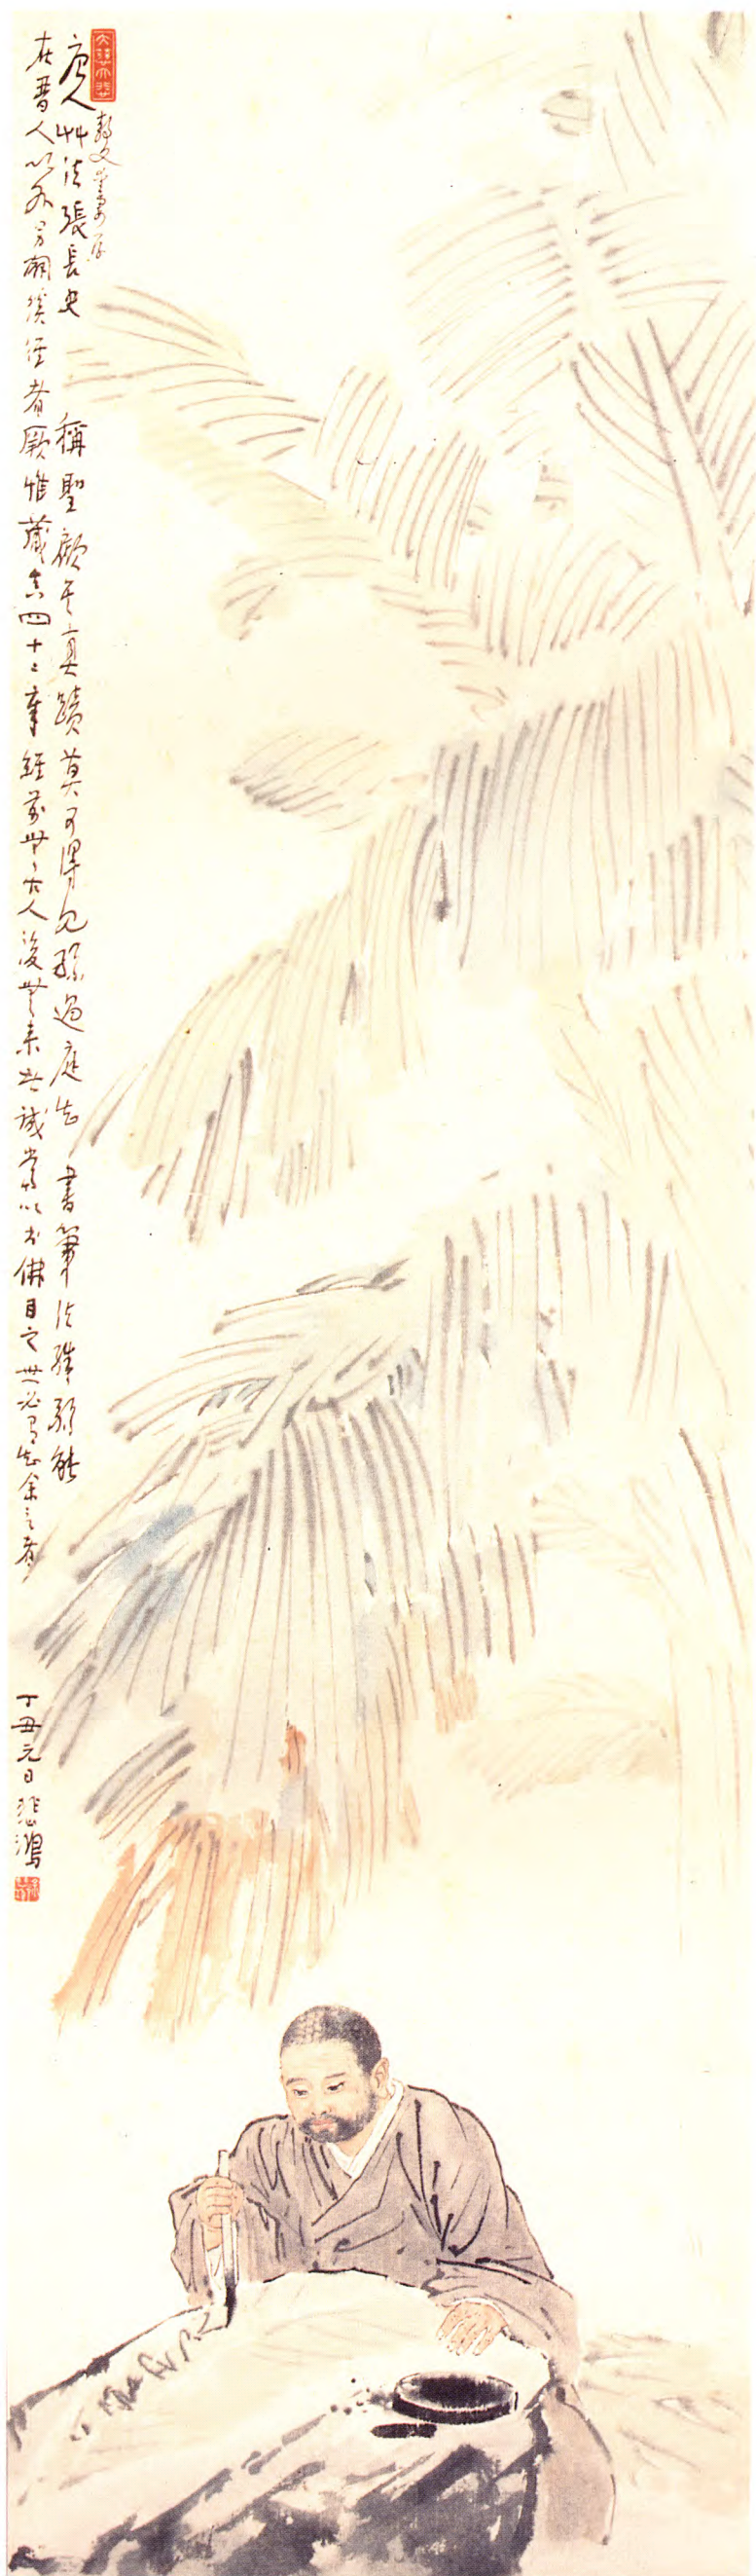 静文愛妻存
唐人艸法張長史稱聖顧其真蹟莫可得見孫過庭知書筆法殊弱能
在晋人以外另闢蹊徑者厥惟藏真四十二章經前無古人後無來者誠當以書佛目之世必有知余言者
丁丑元日悲鴻